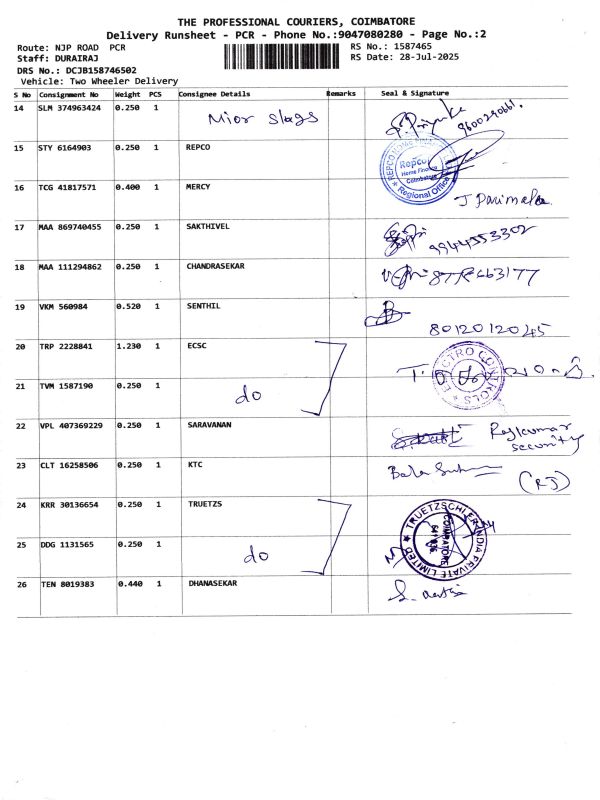 THE PROFESSIONAL COURIERS, COIMBATORE
Delivery Runsheet - PCR - Phone No.:9047080280 - Page No.:2
Route: NJP ROAD PCR
RS No.: 1587465
Staff: DURAIRAJ
RS Date: 28-Jul-2025
DRS No.: DCJB158746502
Vehicle: Two Wheeler Delivery
S No Consignment No Weight PCS Consignee Details Remarks Seal & Signature
14 SLM 374963424 0.250 1 Mior slags Priyanka 9600290661.
15 STY 6164903 0.250 1 REPCO
REPCO HOME FINANCE
Repco
Home Finance
Coimbatore
★ Regional Office ★
16 TCG 41817571 0.400 1 MERCY J Parimala
17 MAA 869740455 0.250 1 SAKTHIVEL 9944553302
18 MAA 111294862 0.250 1 CHANDRASEKAR
19 VKM 560984 0.520 1 SENTHIL 80120 12045
20 TRP 2228841 1.230 1 ECSC
ELECTRO CONTROLS
21 TVM 1587190 0.250 1 do
22 VPL 407369229 0.250 1 SARAVANAN Rajkumar
security
23 CLT 16258506 0.250 1 KTC Bala
(RJ)
24 KRR 30136654 0.250 1 TRUETZS
TRUETZSCHLER INDIA PRIVATE LIMITED ★
COIMBATORE
25 DDG 1131565 0.250 1 do
26 TEN 8019383 0.440 1 DHANASEKAR